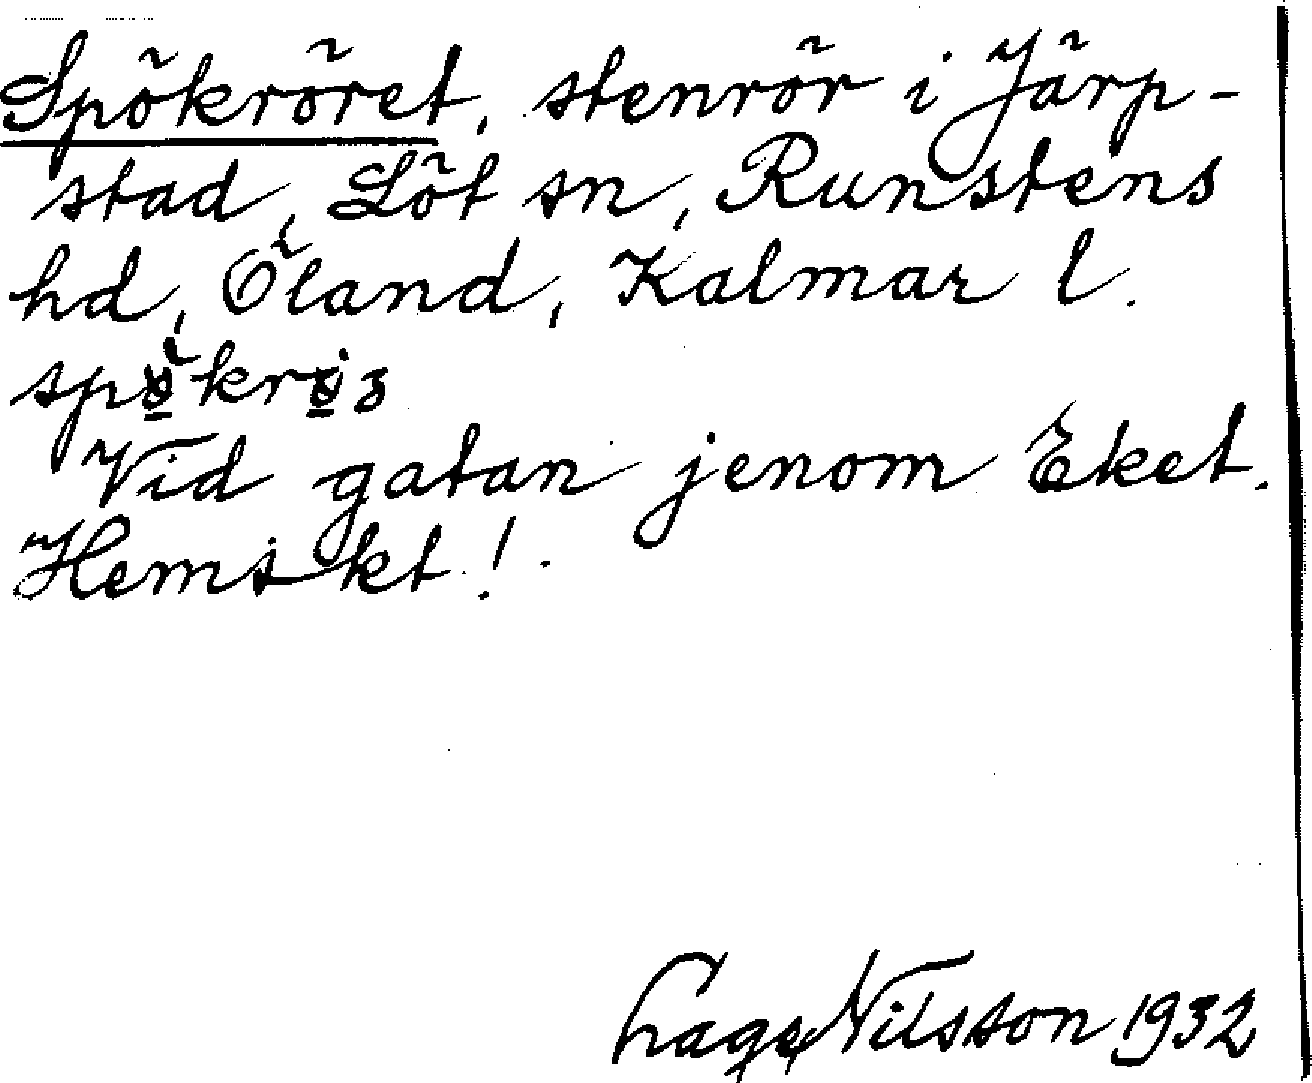 Spökröret, stenrör i Järp-
stad, Löt sn, Runstens
hd, Öland, Kalmar l.
Vid gatan jenom Eket.
Hemskt!.
Lage Nilsson 1932